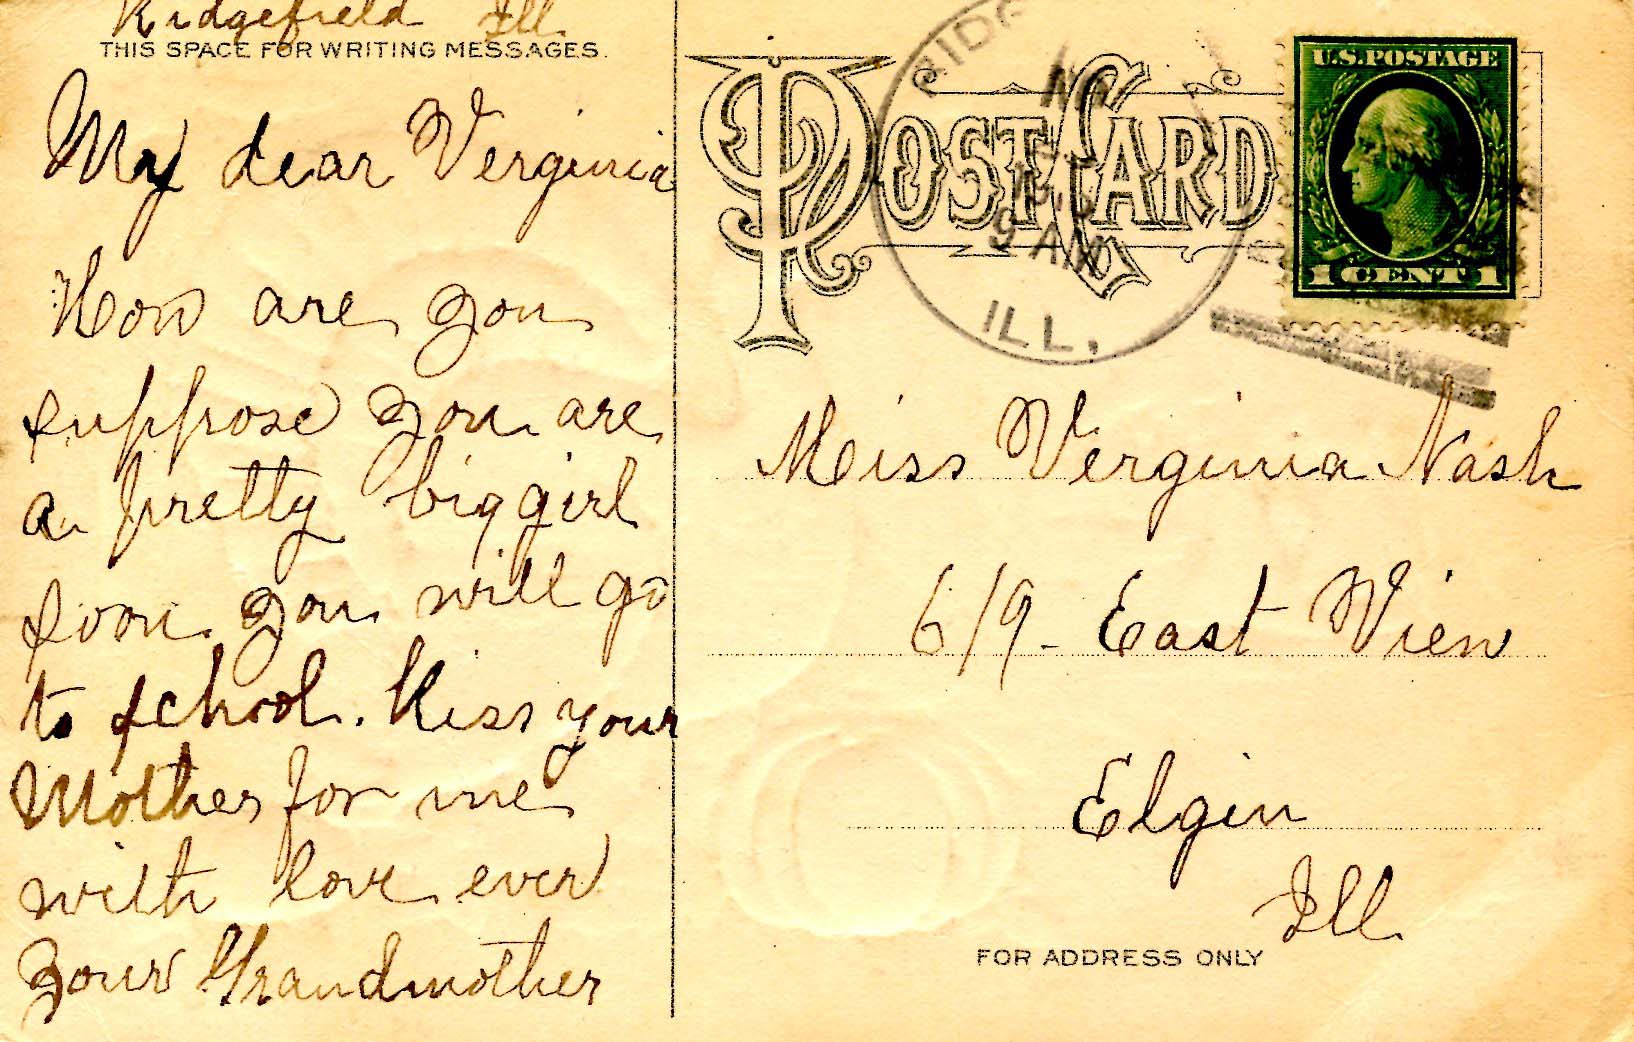 Ridgefield Ill.
THIS SPACE FOR WRITING MESSAGES.
My dear Verginia
How are you
suppose you are
a pretty big girl
soon you will go
to school. Kiss your
Mother for me
with love ever
your Grandmother
POST CARD
RIDG
9 AM
ILL.
U.S. POSTAGE
1 CENT 1
Miss Verginia Nash
619 - East View
Elgin
Ill.
FOR ADDRESS ONLY